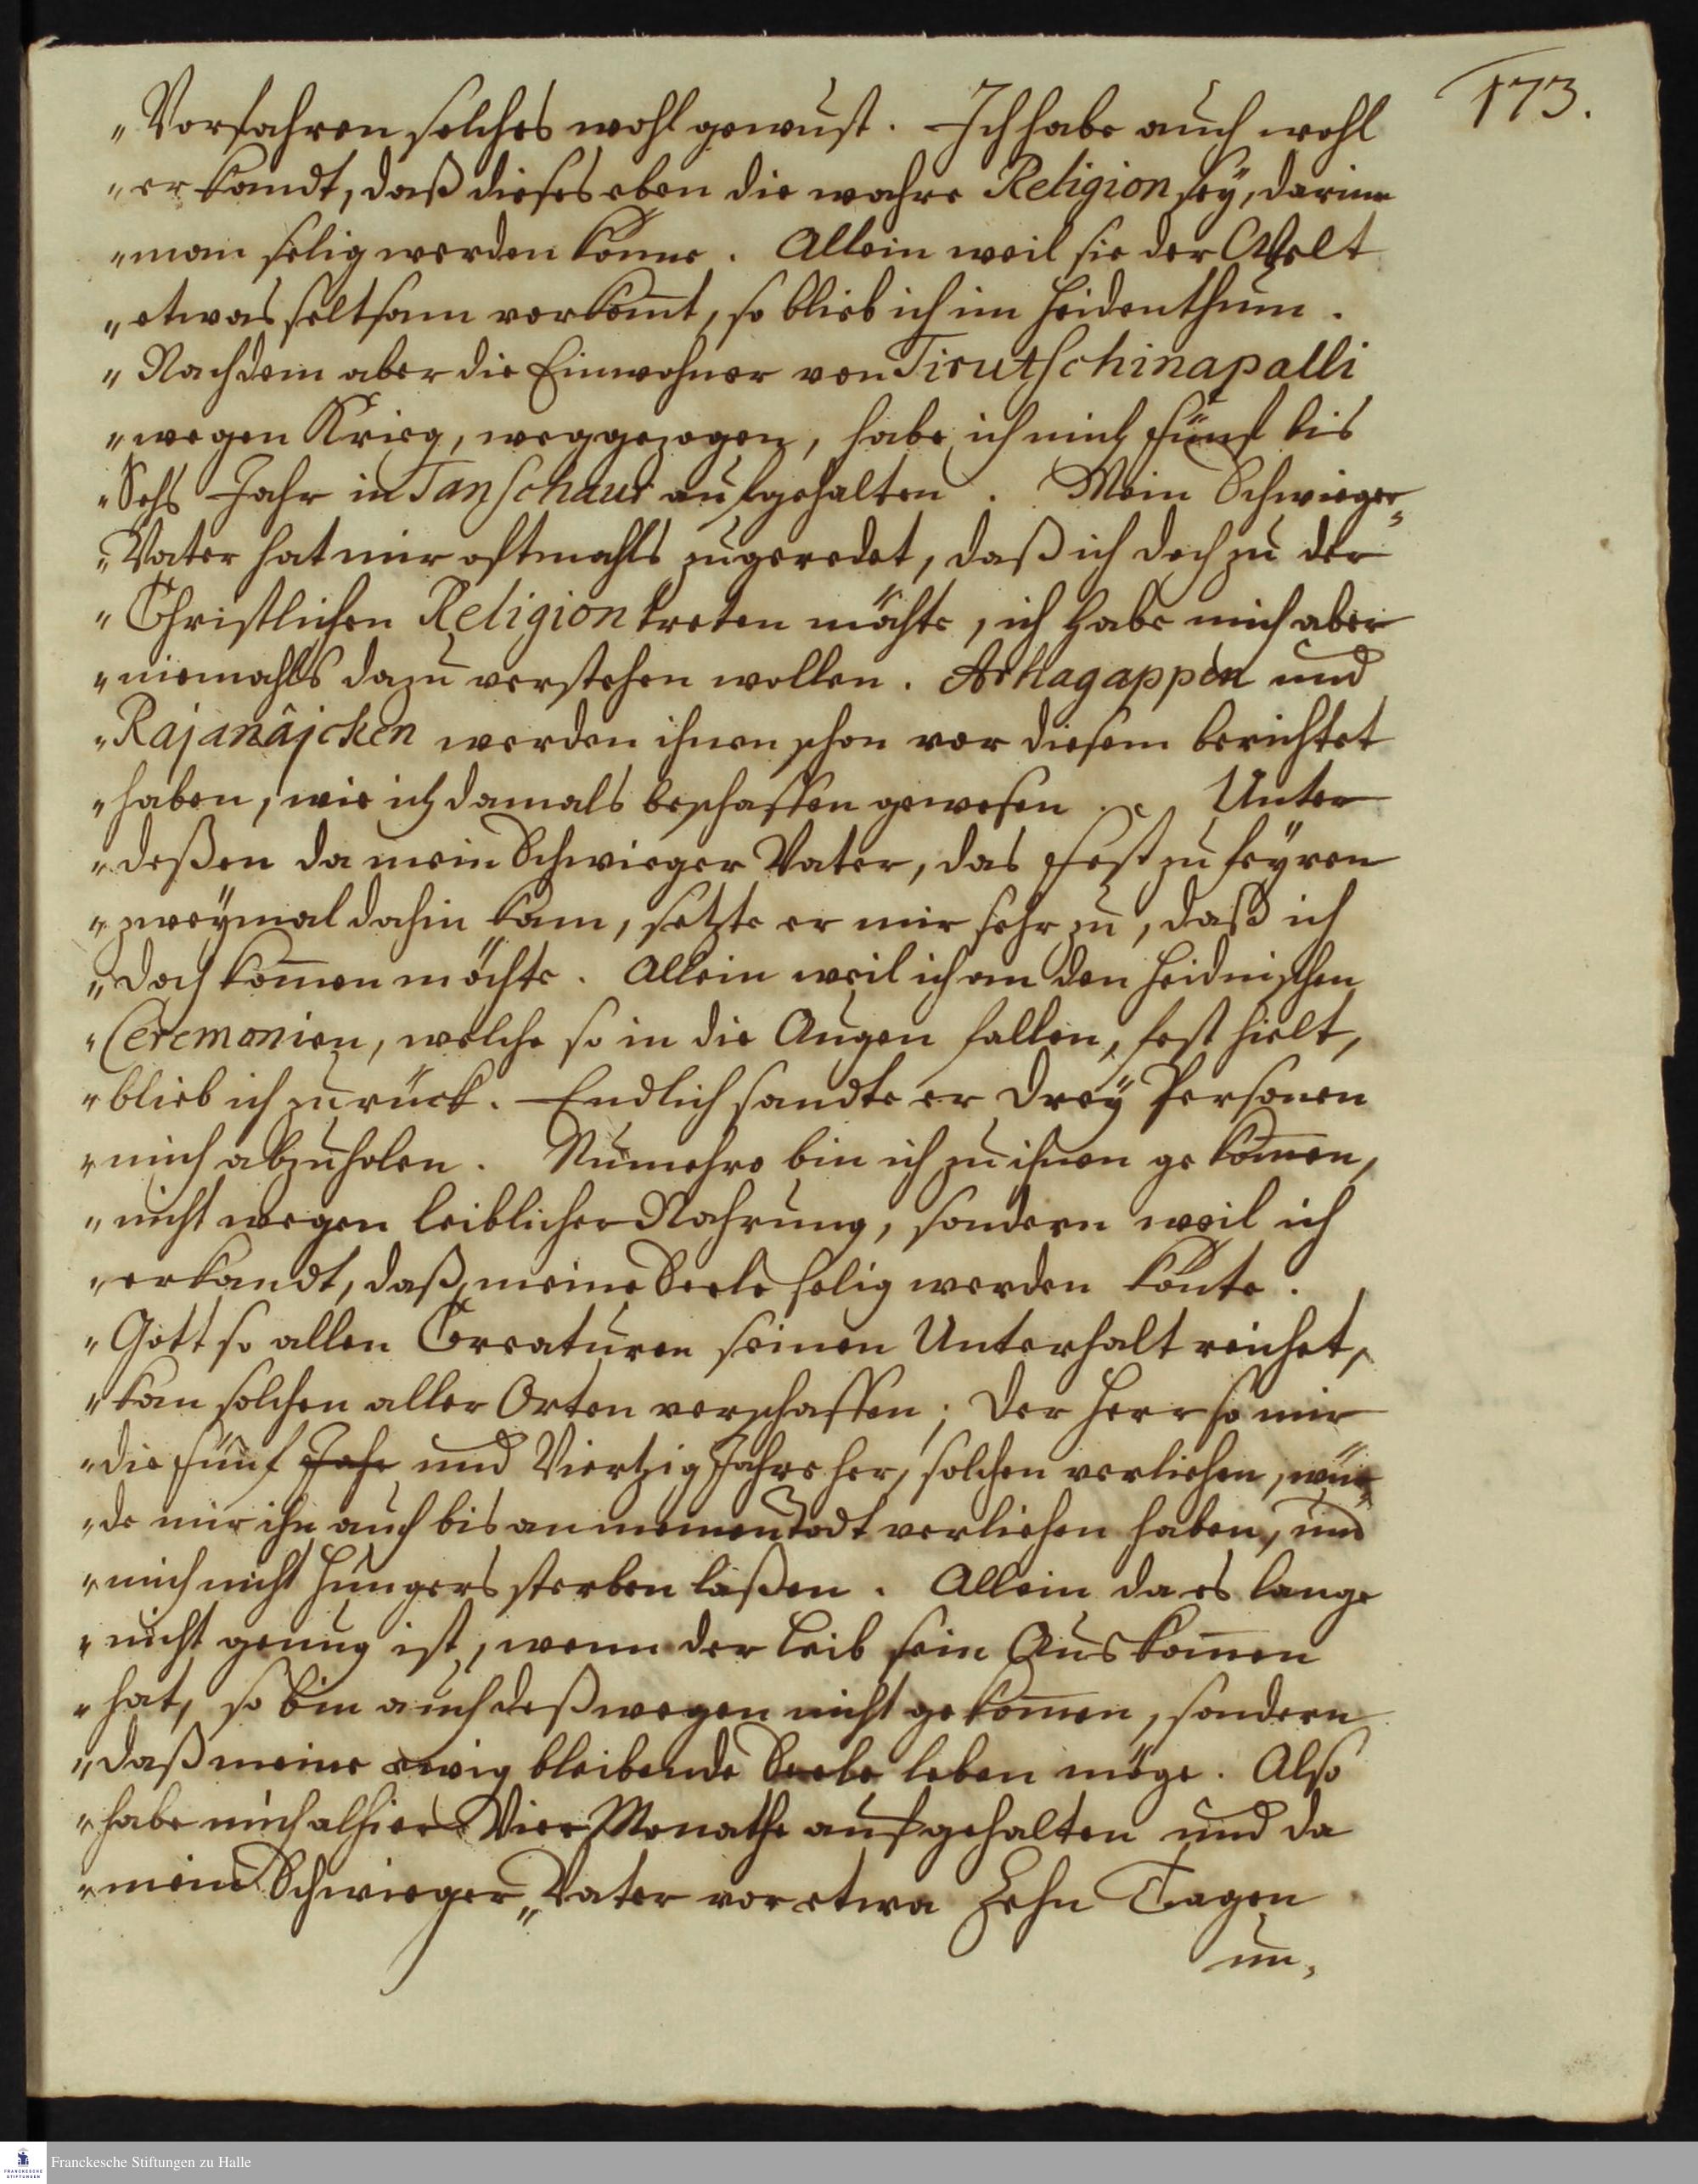 173.
„Vorfahren solches wohl gewust. Ich habe auch wohl
„erkandt, daß dieses eben die wahre Religion sey, darinn
„man selig werden könne. Allein weil sie der Welt
„etwas seltsam vorkom̄t, so blieb ich im Heidenthum.
„Nachdem aber die Einwohner von Tirutschinapalli
„wegen Krieg, weggezogen, habe ich mich fünf bis
„Sechs Jahr in Tanschaur aufgehalten. Mein Schwieger„
„Vater hat mir oftmahls zugeredet, daß ich doch zu der
„Christlichen Religion treten möchte, ich habe mich aber
„niemahls dazu verstehen wollen. Arhagappen und
„Rajanâjcken werden ihnen schon vor diesem berichtet
„haben, wie ich damals beschaffen gewesen. Unter
„deßen da mein Schwieger Vater, das Fest zu feyren
„zweymal dahin kam, setzte er mir sehr zu, daß ich
„doch kom̄en möchte. Allein weil ich an den Heidnischen
„Ceremonien, welche so in die Augen fallen, fest hielt,
„blieb ich zurück. Endlich sandte er drey Personen
„mich abzuholen. Numehro bin ich zu ihnen gekom̄en,
„nicht wegen leiblicher Nahrung, sondern weil ich
„erkandt, daß meine Seele selig werden könte.
„Gott so allen Creaturen seinen Unterhalt reichet,
„kan solchen aller Orten verschaffen; der Herr so mir
„die fünf Jahr und Viertzig Jahre her, solchen verliehen, wür„
„de mir ihn auch bis an meinen Todt verliehen haben, und
„mich nicht Hungers sterben laßen. Allein da es lange
„nicht genug ist, wenn der Leib sein Auskom̄en
„hat, so bin auch deßwegen nicht gekom̄en, sondern
„daß meine ewig bleibende Seele leben möge. Also
„habe mich alhier Vier Monathe aufgehalten und da
„mein Schwieger„Vater vor etwa Zehn Tagen
un„
Franckesche Stiftungen zu Halle
FRANCKESCHE
STIFTUNGEN